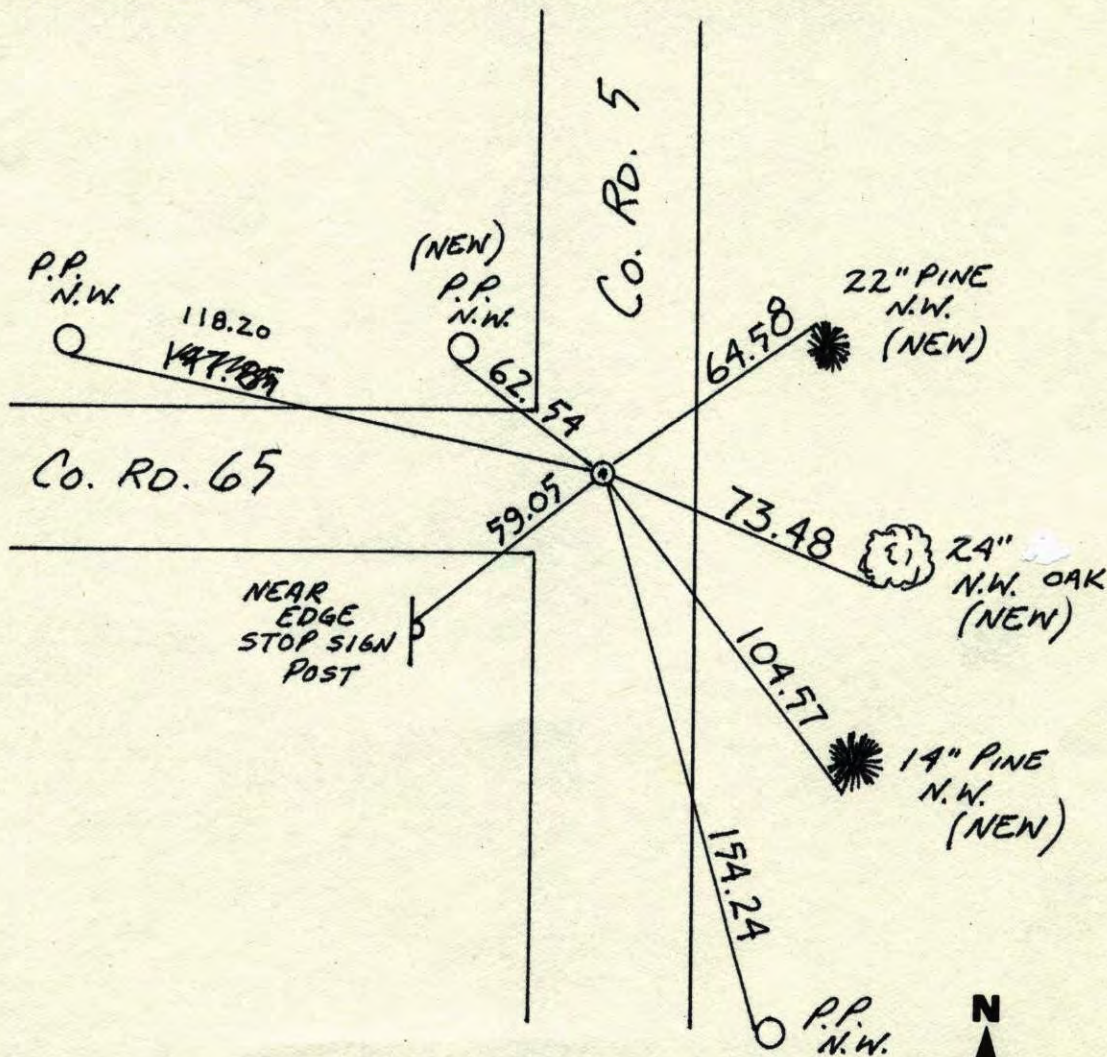 Co. RD. 5
P.P.
N.W.
118.20
(NEW)
P.P.
N.W.
62.54
64.58
22" PINE
N.W.
(NEW)
Co. RD. 65
59.05
73.48
24"
N.W. OAK
(NEW)
NEAR
EDGE
STOP SIGN
POST
104.57
14" PINE
N.W.
(NEW)
154.24
P.P.
N.W.
N